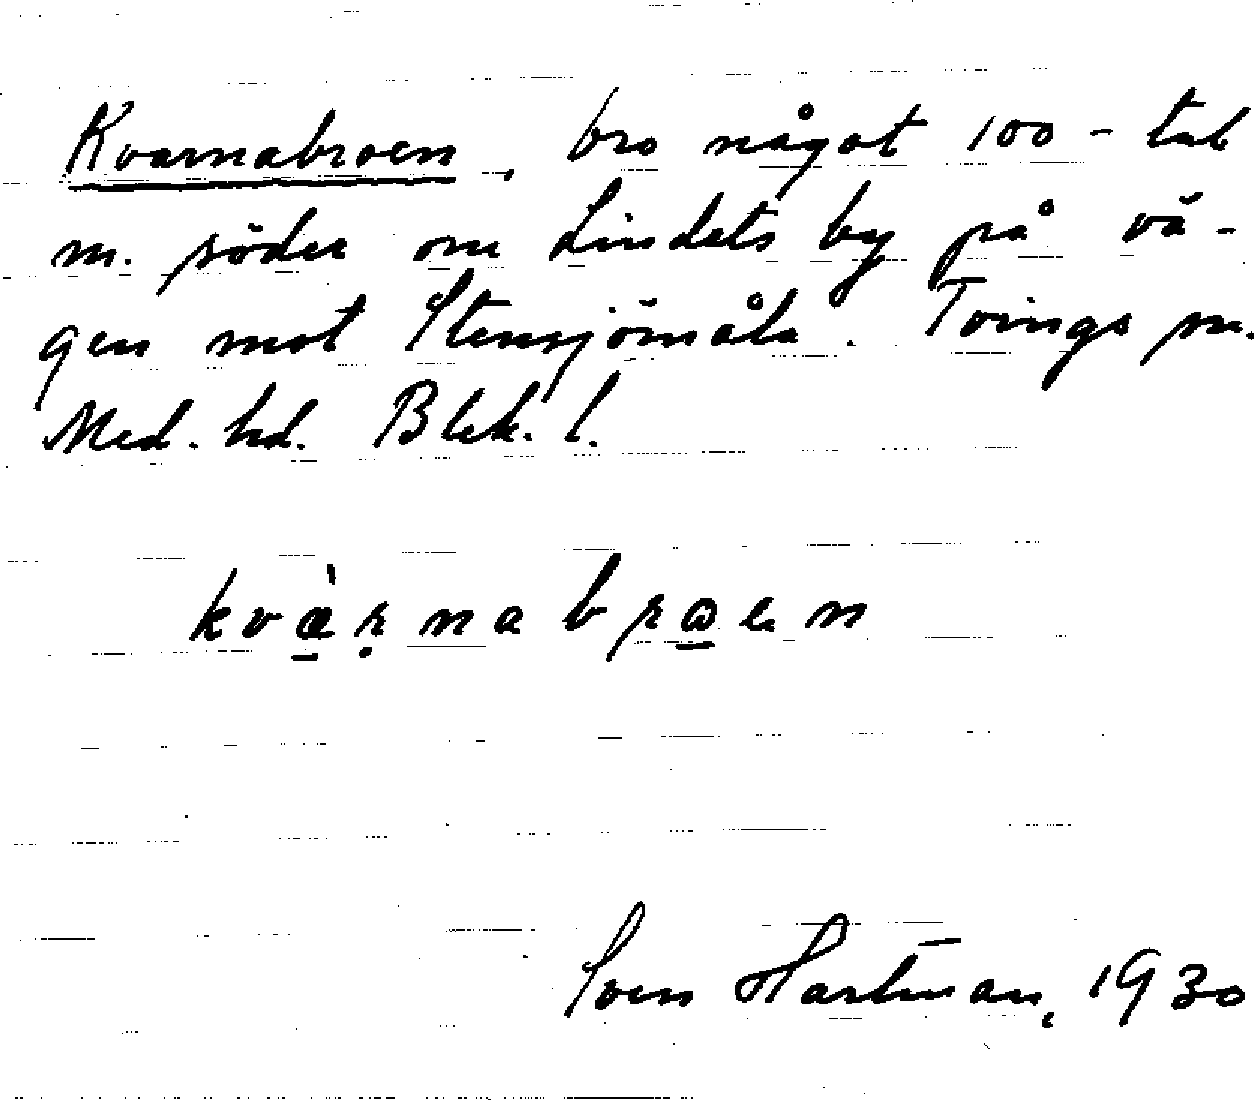 Kvarnabroen, bro något 100-tal
m. söder om Lindets by på vä-
gen mot Stensjömåla. Tvings sn.
Med. hd. Blek. l.
kvæ̀ṛnabrɷen
Sven Hartman, 1930